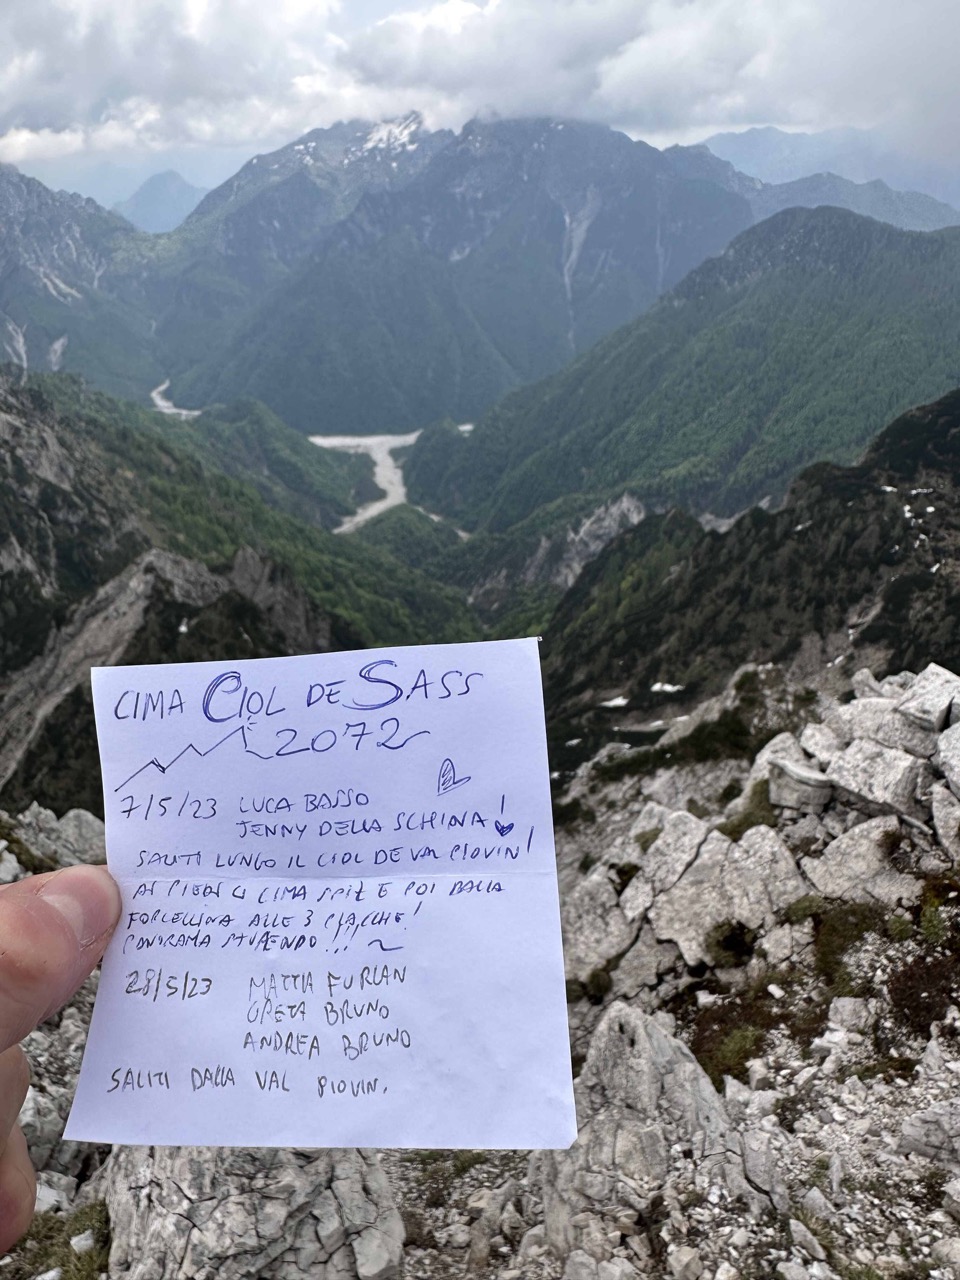 CIMA CIOL DE SASS
2072
7/5/23 LUCA BASSO
JENNY DELLA SCHIAVA!
SALITI LUNGO IL CIOL DE VAL PIOVIN!
AI PIEDI DI CIMA SPIZ E POI DALLA
FORCELLINA ALLE 3 CIACCHE!
PANORAMA STUPENDO!!!
28/5/23 MATTIA FURLAN
GRETA BRUNO
ANDREA BRUNO
SALITI DALLA VAL PIOVIN.